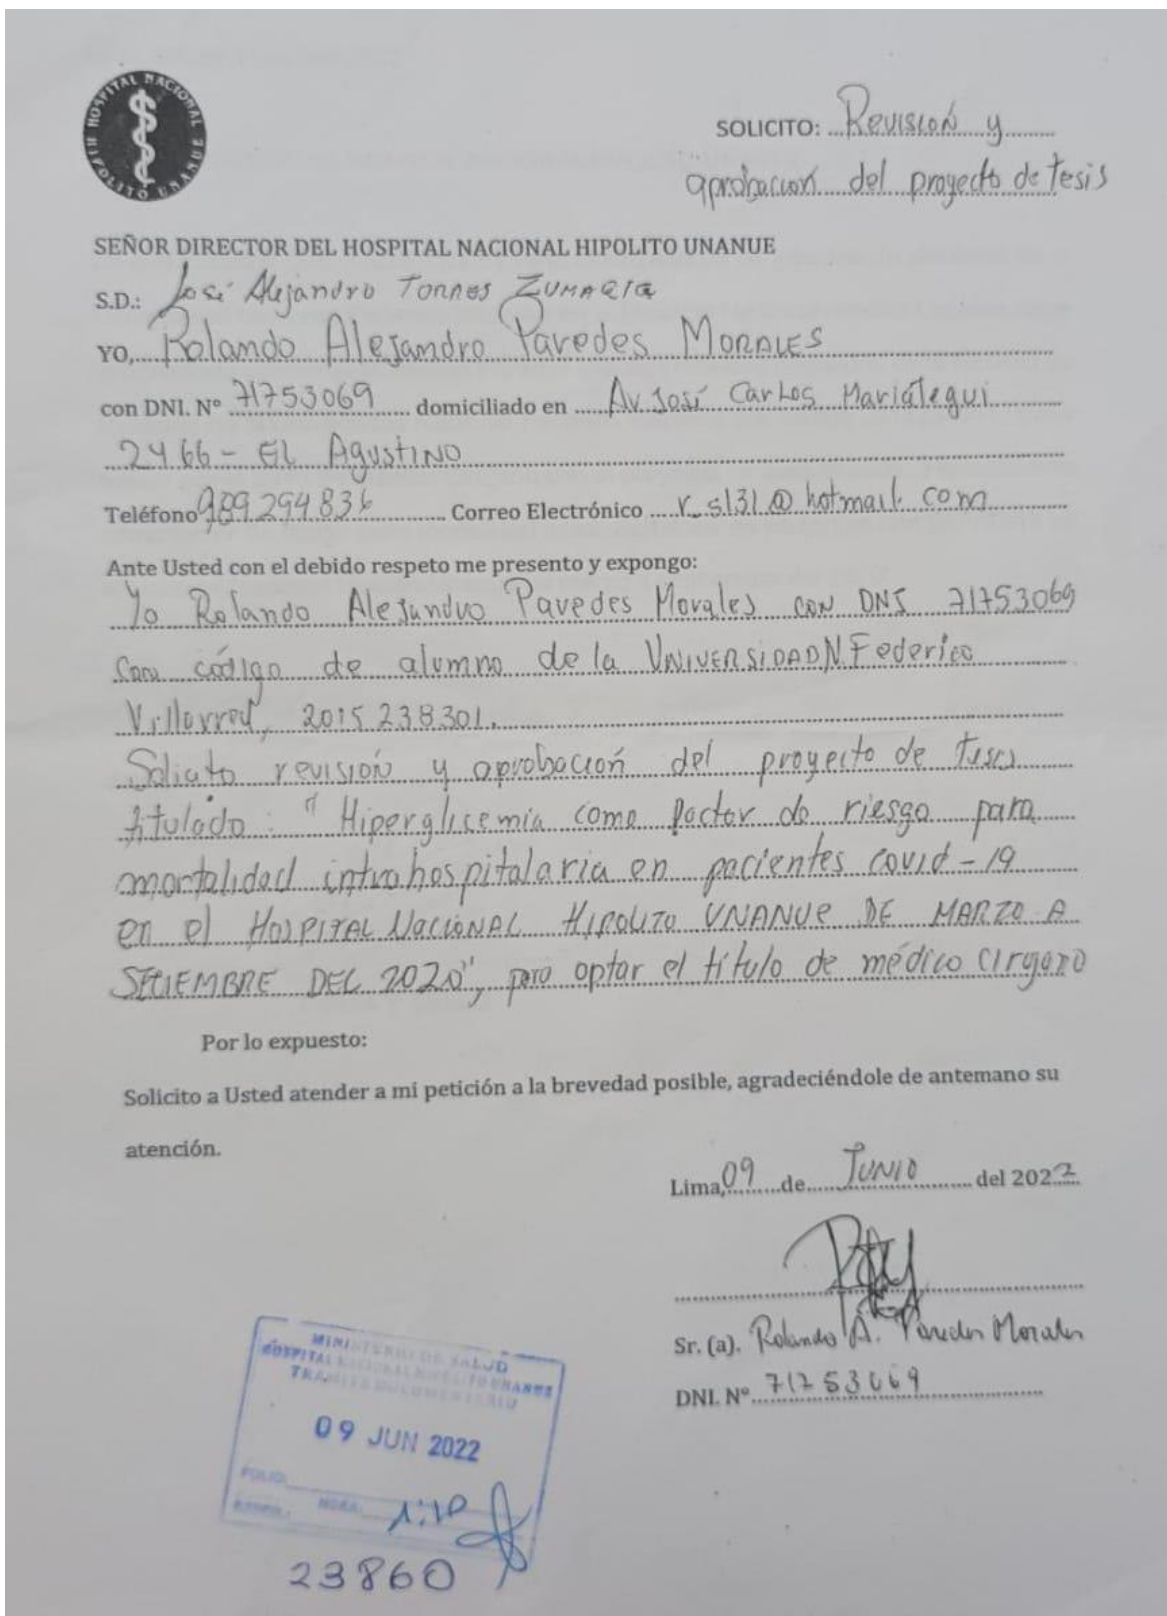 HOSPITAL NACIONAL
HIPOLITO UNANUE
SOLICITO: Revisión y
aprobacion del proyecto de tesis
SEÑOR DIRECTOR DEL HOSPITAL NACIONAL HIPOLITO UNANUE
S.D.: José Alejandro Torres Zumaeta
YO, Rolando Alejandro Paredes Morales
con DNI. Nº 71753069 domiciliado en Av. José Carlos Mariátegui
2466 - El Agustino
Teléfono 989294836 Correo Electrónico r_s131@hotmail.com
Ante Usted con el debido respeto me presento y expongo:
Yo Rolando Alejandro Paredes Morales con DNI 71753069
Con código de alumno de la UNIVERSIDAD N. Federico
Villarreal, 2015238301.
Solicito revisión y aprobación del proyecto de tesis
titulado: "Hiperglicemia como factor de riesgo para
mortalidad intrahospitalaria en pacientes covid-19
en el HOSPITAL NACIONAL HIPOLITO UNANUE DE MARZO A
SETIEMBRE DEL 2020", para optar el título de médico cirujano
Por lo expuesto:
Solicito a Usted atender a mi petición a la brevedad posible, agradeciéndole de antemano su
atención.
Lima, 09 de JUNIO del 2022
Sr. (a). Rolando A. Paredes Morales
DNI. Nº 71753069
MINISTERIO DE SALUD
HOSPITAL NACIONAL HIPOLITO UNANUE
TRAMITE DOCUMENTARIO
09 JUN 2022
FOLIO:
HORA: 1:10
23860